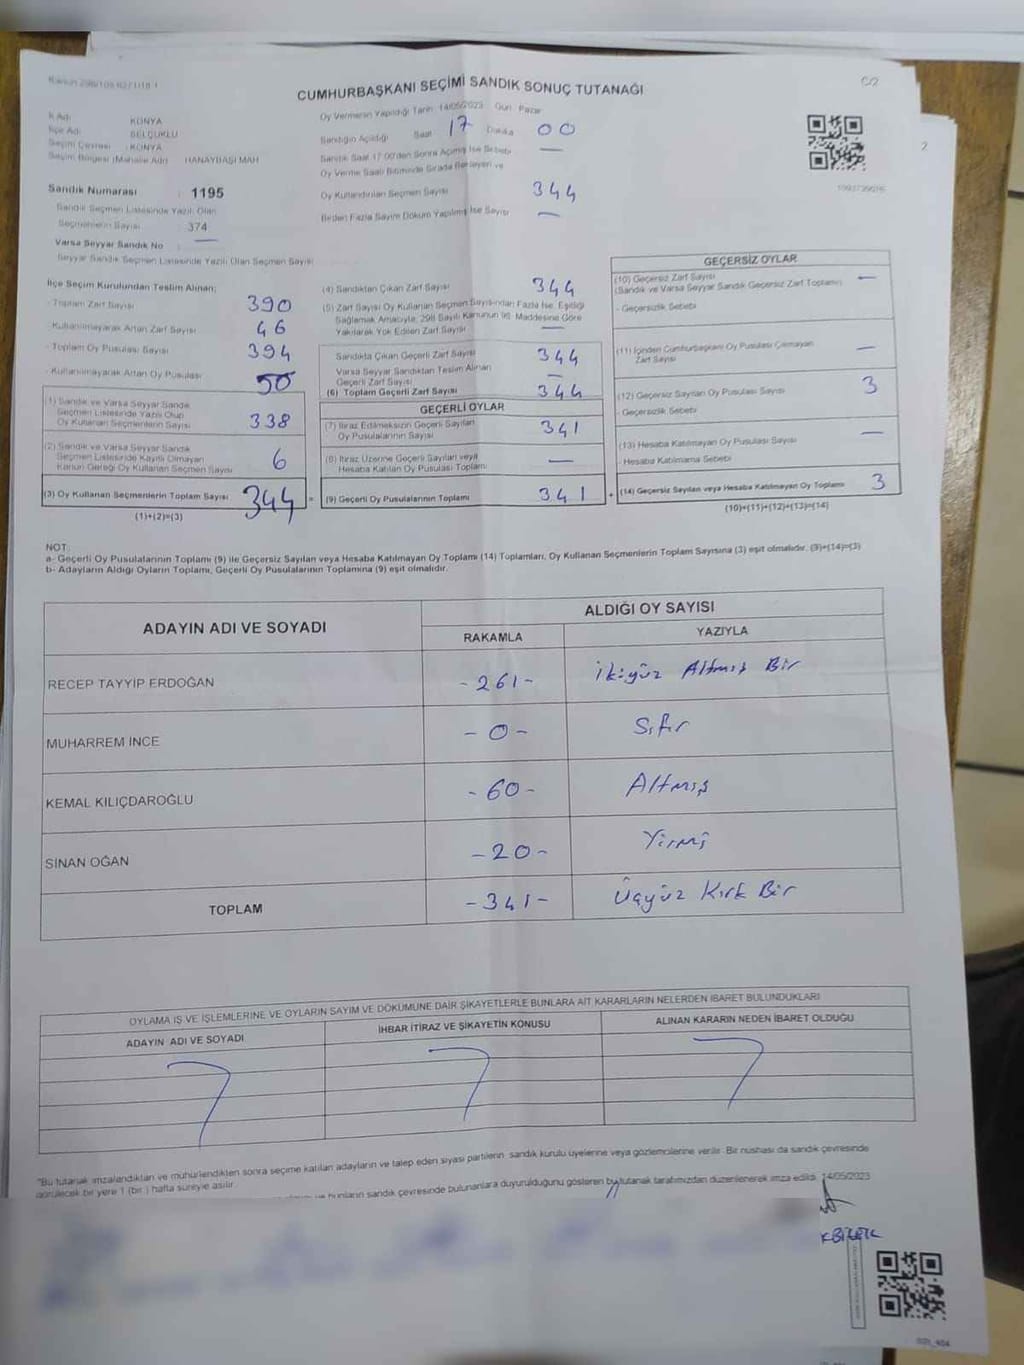 CUMHURBAŞKANI SEÇİMİ SANDIK SONUÇ TUTANAĞI
C/2
İl Adı : KONYA
İlçe Adı : SELÇUKLU
Seçim Çevresi : KONYA
Seçim Bölgesi (Mahalle Adı) : HANAYBAŞI MAH
Sandık Numarası : 1195
Sandık Seçmen Listesinde Yazılı Olan
Seçmenlerin Sayısı 374
Varsa Seyyar Sandık No : —
Seyyar Sandık Seçmen Listesinde Yazılı Olan Seçmen Sayısı
Oy Vermenin Yapıldığı Tarih: 14/05/2023 Gün: Pazar
Sandığın Açıldığı Saat 17 Dakika 00
Sandık Saat 17:00'den Sonra Açılmış İse Sebebi —
Oy Verme Saati Bitiminde Sırada Bekleyen ve
Oy Kullandırılan Seçmen Sayısı 344
Birden Fazla Sayım Döküm Yapılmış İse Sayısı —
2
İlçe Seçim Kurulundan Teslim Alınan;
- Toplam Zarf Sayısı 390
- Kullanılmayarak Artan Zarf Sayısı 46
- Toplam Oy Pusulası Sayısı 394
- Kullanılmayarak Artan Oy Pusulası 50
(1) Sandık ve Varsa Seyyar Sandık
Seçmen Listesinde Yazılı Olup
Oy Kullanan Seçmenlerin Sayısı 338
(2) Sandık ve Varsa Seyyar Sandık
Seçmen Listesinde Kayıtlı Olmayan
Kanun Gereği Oy Kullanan Seçmen Sayısı 6
(3) Oy Kullanan Seçmenlerin Toplam Sayısı 344 =
(1)+(2)=(3)
(4) Sandıktan Çıkan Zarf Sayısı 344
(5) Zarf Sayısı Oy Kullanan Seçmen Sayısından Fazla İse, Eşitliği
Sağlamak Amacıyla, 298 Sayılı Kanunun 98. Maddesine Göre
Yakılarak Yok Edilen Zarf Sayısı —
Sandıkta Çıkan Geçerli Zarf Sayısı 344
Varsa Seyyar Sandıktan Teslim Alınan
Geçerli Zarf Sayısı —
(6) Toplam Geçerli Zarf Sayısı 344
GEÇERLİ OYLAR
(7) İtiraz Edilmeksizin Geçerli Sayılan
Oy Pusulalarının Sayısı 341
(8) İtiraz Üzerine Geçerli Sayılan veya
Hesaba Katılan Oy Pusulası Toplamı —
(9) Geçerli Oy Pusulalarının Toplamı 341 +
GEÇERSİZ OYLAR
(10) Geçersiz Zarf Sayısı —
(Sandık ve Varsa Seyyar Sandık Geçersiz Zarf Toplamı)
- Geçersizlik Sebebi
(11) İçinden Cumhurbaşkanı Oy Pusulası Çıkmayan
Zarf Sayısı —
(12) Geçersiz Sayılan Oy Pusulası Sayısı 3
- Geçersizlik Sebebi
(13) Hesaba Katılmayan Oy Pusulası Sayısı —
- Hesaba Katılmama Sebebi
(14) Geçersiz Sayılan veya Hesaba Katılmayan Oy Toplamı 3
(10)+(11)+(12)+(13)=(14)
NOT
a- Geçerli Oy Pusulalarının Toplamı (9) ile Geçersiz Sayılan veya Hesaba Katılmayan Oy Toplamı (14) Toplamları, Oy Kullanan Seçmenlerin Toplam Sayısına (3) eşit olmalıdır. (9)+(14)=(3)
b- Adayların Aldığı Oyların Toplamı, Geçerli Oy Pusulalarının Toplamına (9) eşit olmalıdır.
ADAYIN ADI VE SOYADI ALDIĞI OY SAYISI
RAKAMLA YAZIYLA
RECEP TAYYİP ERDOĞAN -261- İkiyüz Altmış Bir
MUHARREM İNCE -0- Sıfır
KEMAL KILIÇDAROĞLU -60- Altmış
SİNAN OĞAN -20- Yirmi
TOPLAM -341- Üçyüz Kırk Bir
OYLAMA İŞ VE İŞLEMLERİNE VE OYLARIN SAYIM VE DÖKÜMÜNE DAİR ŞİKAYETLERLE BUNLARA AİT KARARLARIN NELERDEN İBARET BULUNDUKLARI
ADAYIN ADI VE SOYADI İHBAR İTİRAZ VE ŞİKAYETİN KONUSU ALINAN KARARIN NEDEN İBARET OLDUĞU
"Bu tutanak imzalandıktan ve mühürlendikten sonra seçime katılan adayların ve talep eden siyasi partilerin sandık kurulu üyelerine veya gözlemcilerine verilir. Bir nüshası da sandık çevresinde
görülecek bir yere 1 (bir ) hafta süreyle asılır.
ve bunların sandık çevresinde bulunanlara duyurulduğunu gösteren bu tutanak tarafımızdan düzenlenerek imza edildi. 14/05/2023